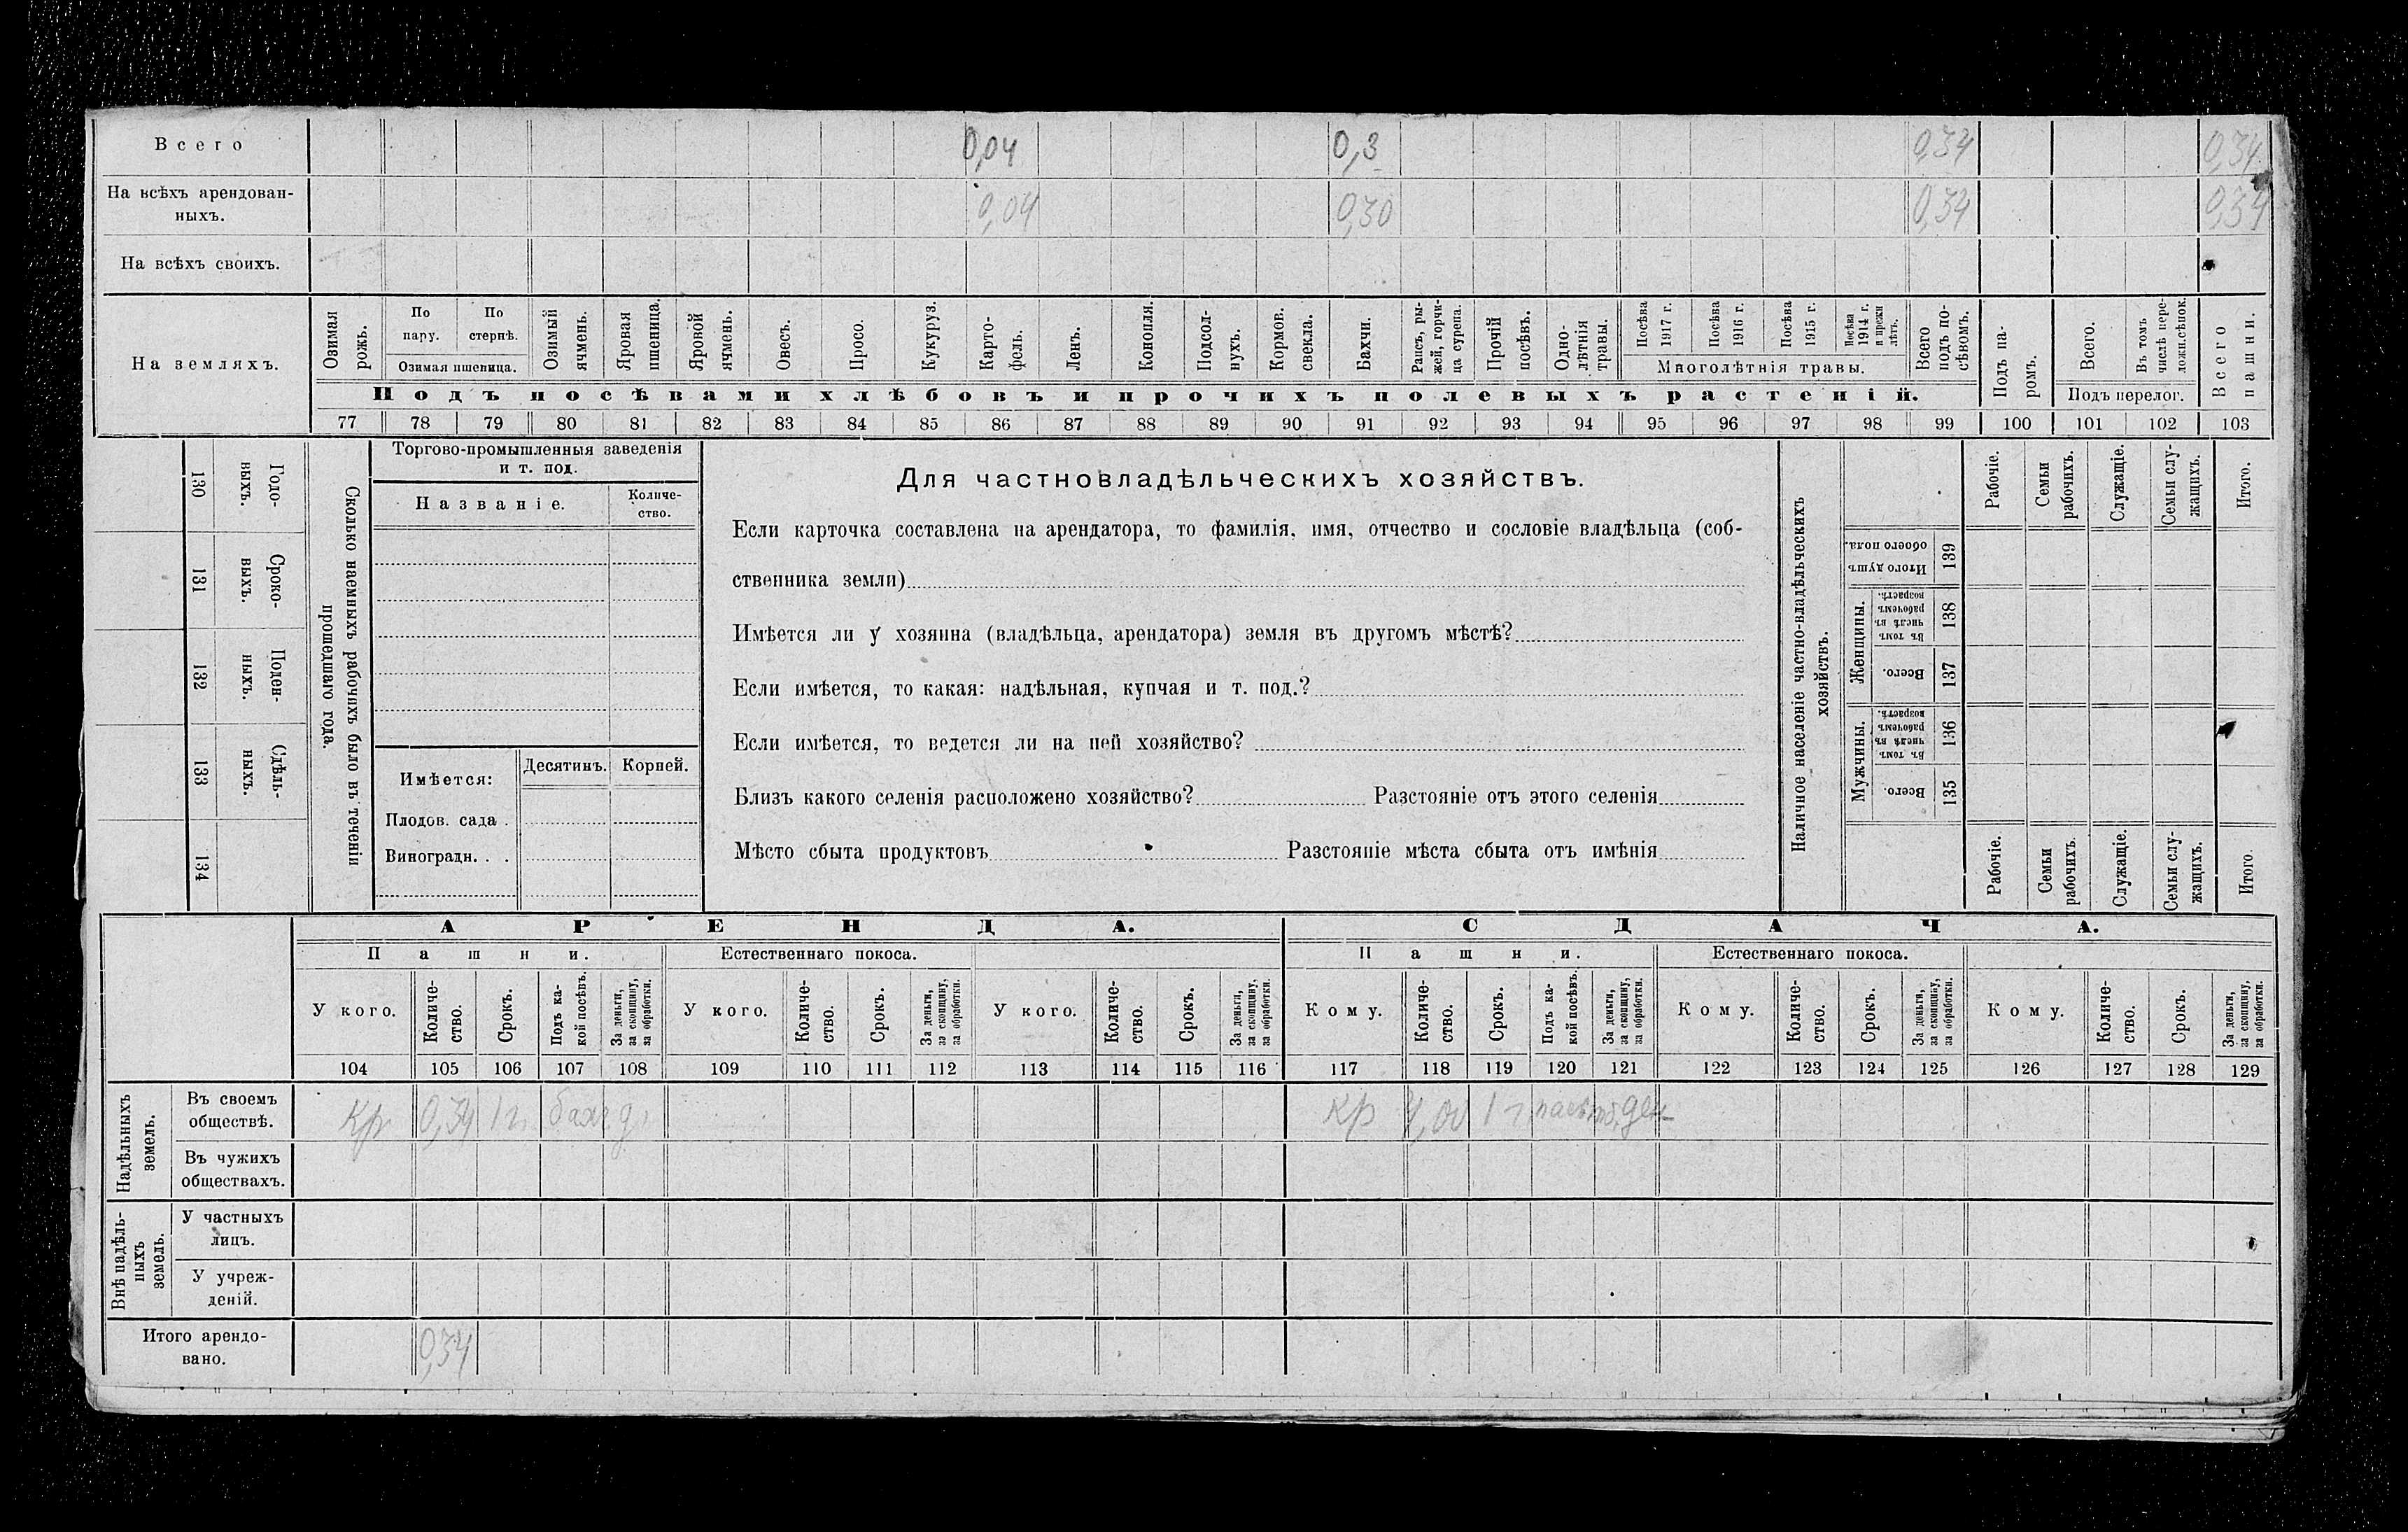 Всего 0,04 0,3 0,34 0,34
На всѣхъ арендован-
ныхъ. 0,04 0,30 0,34 0,34
На всѣхъ своихъ.
На земляхъ.
Озимая рожь.
По пару.
По стернѣ.
Озимая пшеница.
Озимый ячмень.
Яровая пшеница.
Яровой ячмень.
Овесъ.
Просо.
Кукуруз.
Карто-
фель.
Ленъ.
Конопля.
Подсол-
нухъ.
Кормов.
свекла.
Бахчи.
Рапсъ, ры-
жей, горчи-
ца сурепа.
Прочій
посѣвъ.
Одно-
лѣтнія
травы.
Посѣва
1917 г.
Посѣва
1916 г.
Посѣва
1915 г.
Посѣва
1914 г.
и прежн
лѣтъ.
Многолѣтнія травы.
Всего
подъ по-
сѣвомъ.
Подъ посѣвами хлѣбовъ и прочихъ полевыхъ растеній.
Подъ па-
ромъ.
Всего.
Въ томъ
числѣ пере-
ложн.сѣнок.
Подъ перелог.
Всего
пашни.
77 78 79 80 81 82 83 84 85 86 87 88 89 90 91 92 93 94 95 96 97 98 99 100 101 102 103
130 Годо-
выхъ.
131 Сроко-
выхъ.
132 Поден-
ныхъ.
133 Сдѣль-
ныхъ.
134
Сколько наемныхъ рабочихъ было въ теченіи
прошедшаго года.
Торгово-промышленныя заведенія
и т. под.
Названіе.
Количе-
ство.
Имѣется:
Десятинъ. Корней.
Плодов. сада .
Виноградн. . .
Для частновладѣльческихъ хозяйствъ.
Если карточка составлена на арендатора, то фамилія, имя, отчество и сословіе владѣльца (соб-
ственника земли)
Имѣется ли у хозяина (владѣльца, арендатора) земля въ другомъ мѣстѣ?
Если имѣется, то какая: надѣльная, купчая и т. под.?
Если имѣется, то ведется ли на ней хозяйство?
Близъ какого селенія расположено хозяйство? Разстояніе отъ этого селенія
Мѣсто сбыта продуктовъ Разстояніе мѣста сбыта отъ имѣнія
Наличное населеніе частно-владѣльческихъ
хозяйствъ.
Рабочіе.
Семьи
рабочихъ.
Служащіе.
Семьи слу-
жащихъ.
Итого.
Итого душъ
обоего пола.
139
Женщины.
Въ томъ
числѣ въ
рабочемъ
возрастѣ.
138
Всего.
137
Мужчины.
Въ томъ
числѣ въ
рабочемъ
возрастѣ.
136
Всего.
135
Рабочіе.
Семьи
рабочихъ.
Служащіе.
Семьи слу-
жащихъ.
Итого.
АРЕНДА. СДАЧА.
Пашни. Естественнаго покоса. Пашни. Естественнаго покоса.
У кого.
Количе-
ство.
Срокъ.
Подъ ка-
кой посѣвъ.
За деньги,
за скопщину,
за обработки.
У кого.
Количе-
ство.
Срокъ.
За деньги,
за скопщину,
за обработки.
У кого.
Количе-
ство.
Срокъ.
За деньги,
за скопщину,
за обработки.
Кому.
Количе-
ство.
Срокъ.
Подъ ка-
кой посѣвъ.
За деньги,
за скопщину,
за обработки.
Кому.
Количе-
ство.
Срокъ.
За деньги,
за скопщину,
за обработки.
Кому.
Количе-
ство.
Срокъ.
За деньги,
за скопщину,
за обработки.
104 105 106 107 108 109 110 111 112 113 114 115 116 117 118 119 120 121 122 123 124 125 126 127 128 129
Надѣльныхъ
земель.
Въ своемъ
обществѣ. Кр 0,34 1 г. бахч д. кр 1 г. ден
Въ чужихъ
обществахъ.
Внѣ надѣль-
ныхъ
земель.
У частныхъ
лицъ.
У учреж-
деній.
Итого арендо-
вано. 0,34